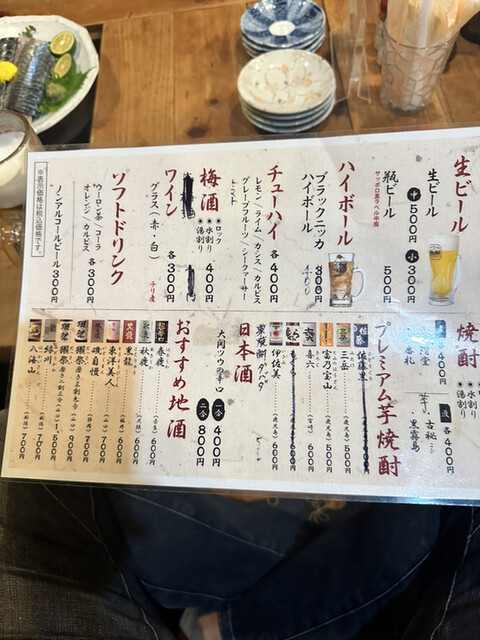 生ビール
生ビール
中 500円
小 300円
瓶ビール 500円
サッポロ黒ラベル中瓶
ハイボール
ブラックニッカ
ハイボール
400
チューハイ 各400円
レモン／ライム／カシス／カルピス
グレープフルーツ／シークァーサー
トマト
梅酒
●ロック
●水割り
●湯割り
400円
ワイン
グラス（赤・白） 各300円
チリ産
ソフトドリンク
ウーロン茶／コーラ 各300円
オレンジ／カルピス
ノンアルコールビール 300円
※表示価格は税込価格です。
焼酎
●水割り
●湯割り
400円
芋
各400円
黒霧島
プレミアム芋焼酎
佐藤黒
三岳 （鹿児島） 500円
富乃宝山 （鹿児島） 500円
喜六 （宮崎） 600円
伊佐美 （鹿児島） 600円
日本酒
大関ツウの辛口
一合 400円
二合 800円
おすすめ地酒
春鹿 600円
秋鹿 （大阪） 600円
黒龍 （福井） 600円
東洋美人 （山口） 600円
磯自慢 （静岡） 700円
獺祭
緑川 （新潟） 700円
八海山 （新潟） 700円